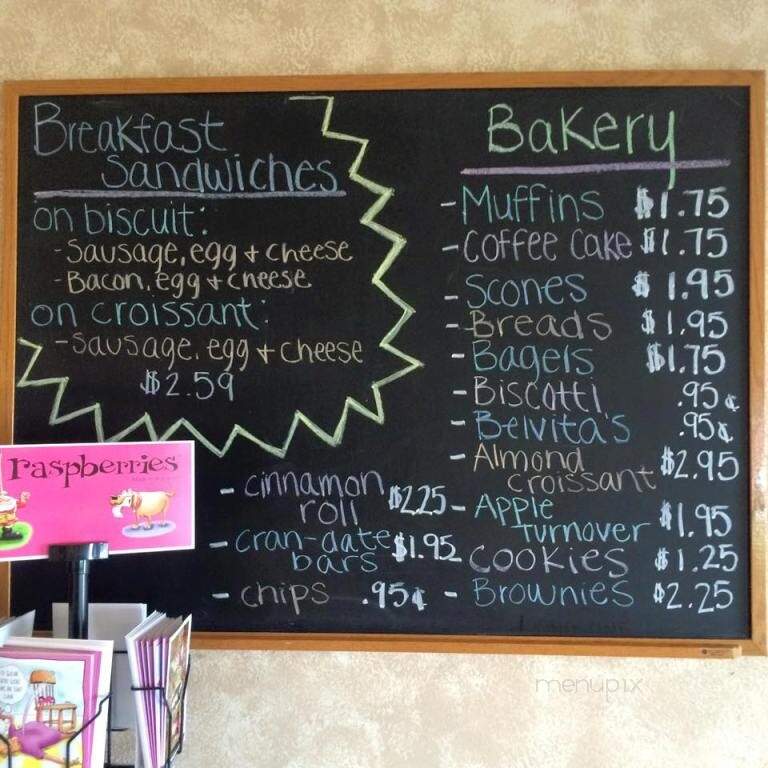 Breakfast
Sandwiches
on biscuit:
- Sausage, egg + cheese
- Bacon, egg + cheese
on croissant:
- Sausage, egg + cheese
$2.59
Bakery
- Muffins $1.75
- Coffee Cake $1.75
- Scones $1.95
- Breads $1.95
- Bagels $1.75
- Biscotti .95¢
- Belvita's .95¢
- Almond
croissant $2.95
- Apple
Turnover $1.95
COOKIES $1.25
- Brownies $2.25
- cinnamon
roll $2.25
- cran-date
bars $1.95
- chips .95¢
raspberries
menupix